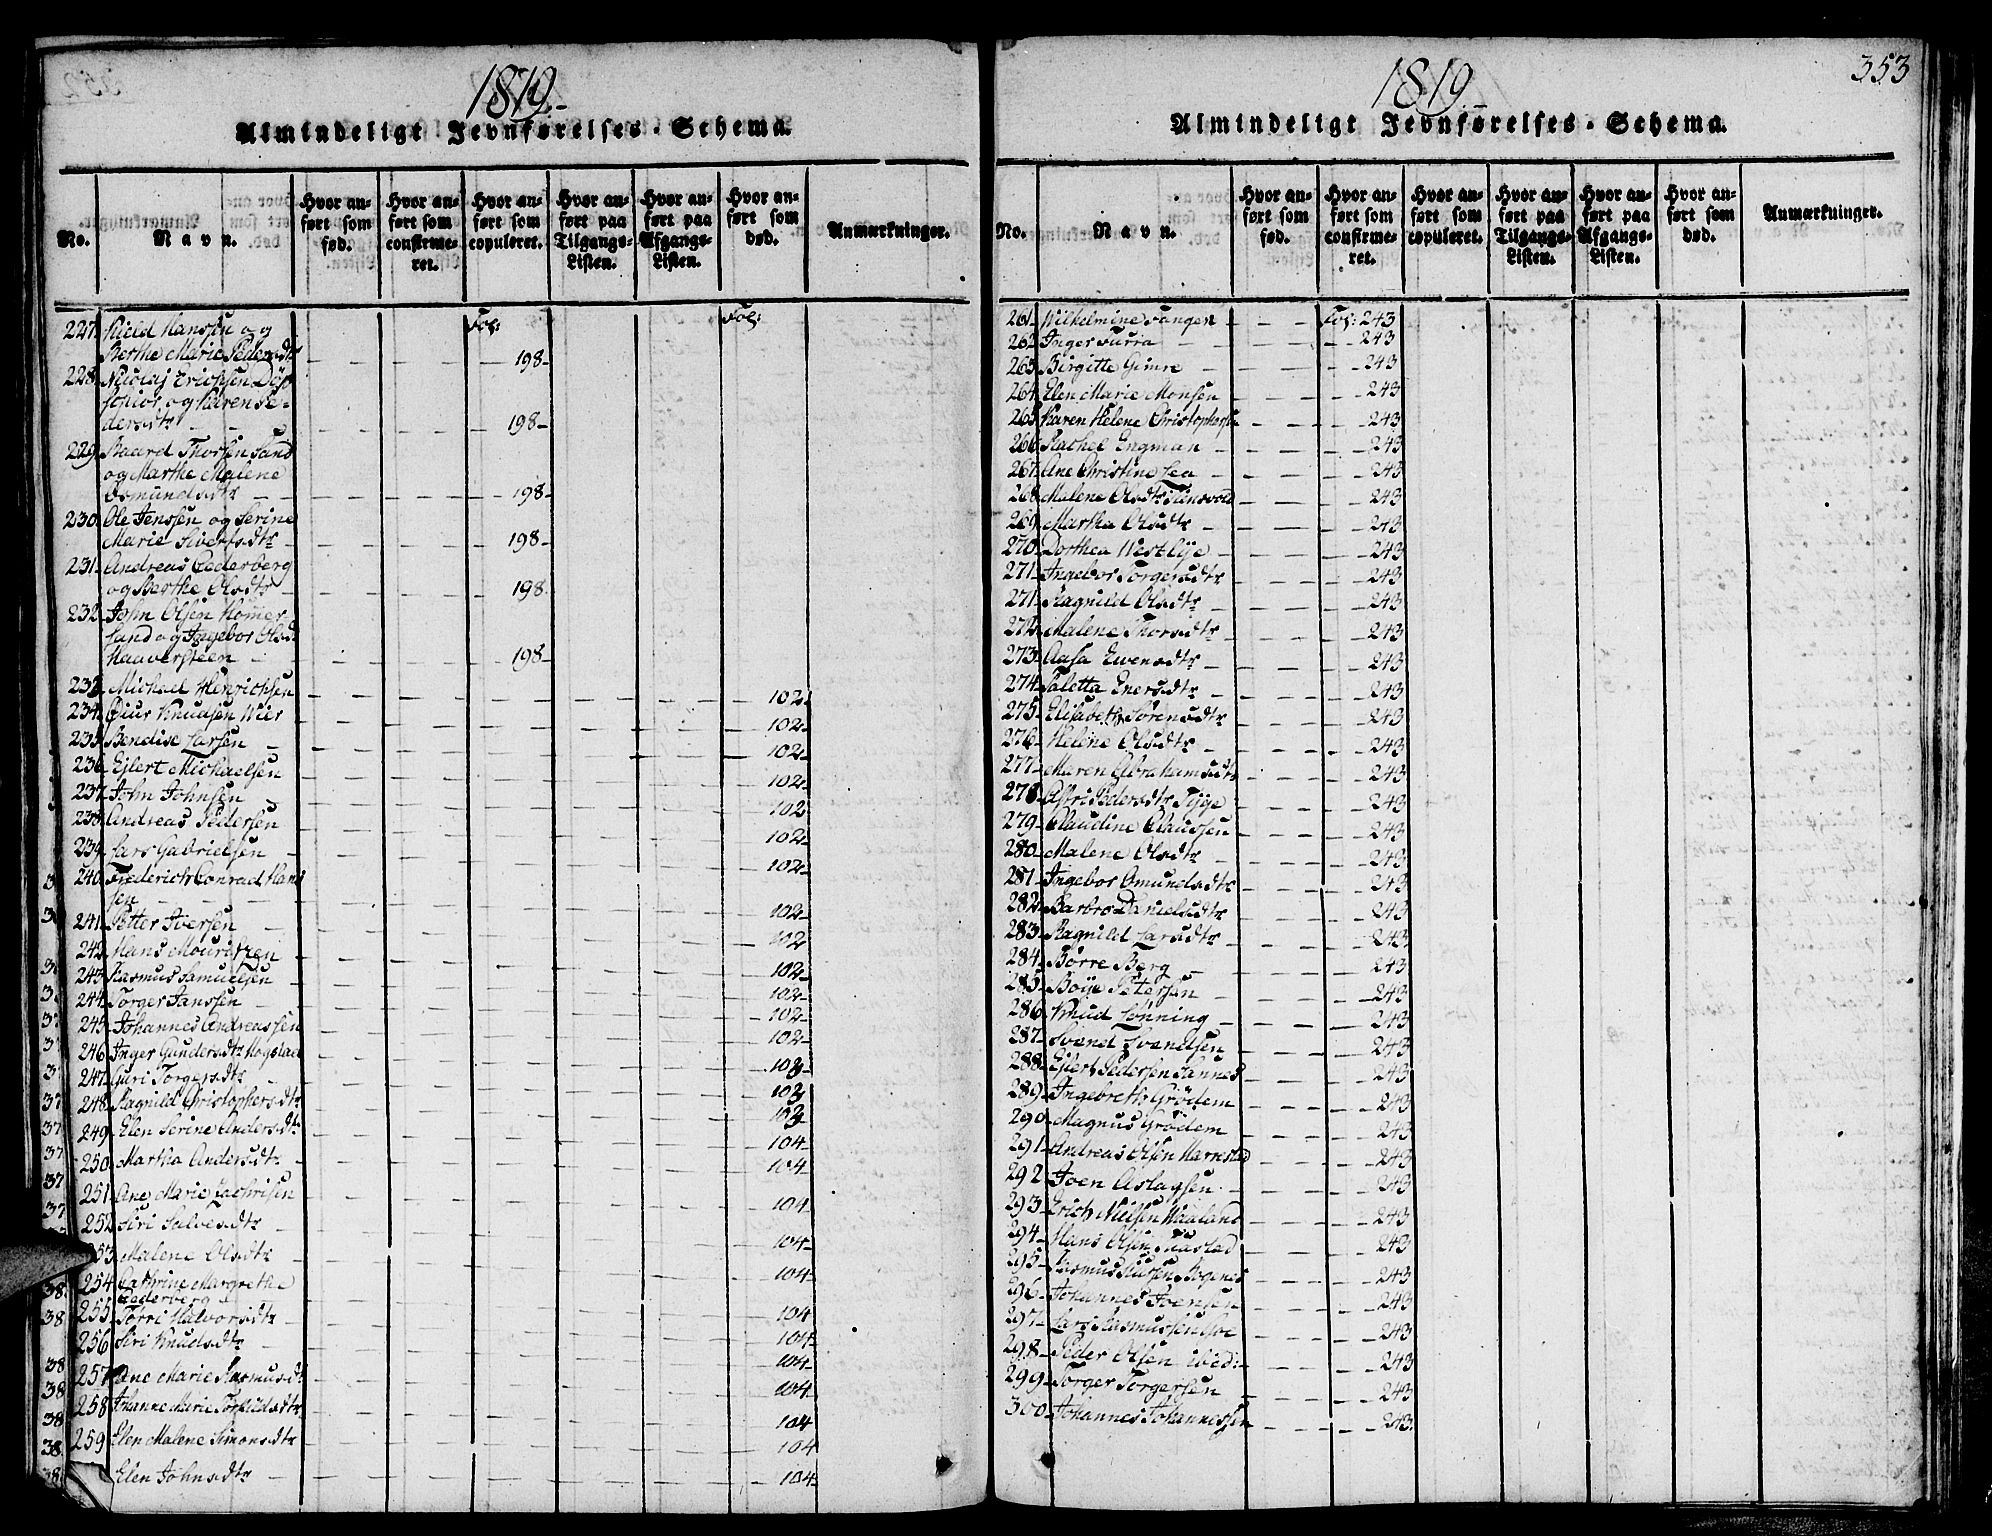 1819.
Almindeligt Jevnførelses-Schema.
No.
Navn.
Hvor anført som fød.
Hvor anført som confirmeret.
Hvor anført som copuleret.
Hvor anført paa Tilgangs-Listen.
Hvor anført paa Afgangs-Listen.
Hvor anført som død.
Anmærkninger.
Fol: Fol:
227. Kield Hanssen og
Berthe Marie Pedersdtr 198-
228. Nicolaj Erichsen
og Karen Pe-
dersdtr 198-
229. Baard Thorsen Sand
og Marthe Malene
Osmundsdtr 198-
230. Ole Jenssen og Serine
Marie Sivertsdtr 198-
231. Andreas Cederberg
og Berthe Olsdtr 198.
232. John Olsen Hommer-
sand og Ingebor Olsd.
Haaversteen 198-
233. Michael Henrichsen 102
234. Knudsen Wier 102-
235. Bendise Larsen 102-
236. Ejlert Michaelsen 102-
237. John Johnsen 102
238. Andreas Pedersen 102-
239. Lars Gabrielsen 102-
240. Frederich Conrad Hans
sen 102-
241. Petter Iversen 102
242. Hans Mouritzen 102-
243. Rasmus Samuelsen 102-
244. Torger Janssen 102-
245. Johannes Andreassen 102-
246. Inger Gundersdtr Hogstad 103-
247. Guri Torgersdtr 103
248. Ragnild Christophersdtr 103
249. Elen Serine Andersdtr 104-
250. Martha Andersdtr 104-
251. Ane Marie Zachrisen 104-
252. Siri Salvesdtr 104-
253. Malene Olsdtr 104-
254. Cathrine Margrethe
Cederberg 104
255. Torri Halvorsdtr 104-
256. Siri Knudsdtr 104
257. Ane Marie Rasmusdt 104-
258. Johanne Marie Torkildsdtr 104
259. Elen Malene Simonsdtr 104
Elen Johnsdtr 104-
353
1819.
Almindeligt Jevnførelses-Schema.
No.
Navn.
Hvor anført som fød.
Hvor anført som confirmeret.
Hvor anført som copuleret.
Hvor anført paa Tilgangs-Listen.
Hvor anført paa Afgangs-Listen.
Hvor anført som død.
Anmærkninger.
261. Wilhelmine Fangen Fol: 243
262. Inger Surra 243
263. Birgitte Gimre 243
264. Elen Marie Monsen 243
265. Karen Helene Christophersen 243
266. Rachel Engman 243
267. Ane Christine Lea 243
268. Malene Olsdtr Tunsvold 243
269. Martha Olsdtr 243
270. Dorthea Westlye 243
271. Ingebor Torgersdtr 243
271. Ragnild Olsdtr 243
272. Malene Thorsdtr 243
273. Aasa Ewensdtr 243
274. Taletta Enersdtr 243
275. Elisabeth Sørensdtr 243
276. Helene Olsdtr 243
277. Maren Abrahamsdtr 243
278. Astri Pedersdtr 243
279. Claudine Claussen 243
280. Malene Olsdtr 243
281. Ingebor Omundsdtr 243
282. Barbro Danielsdtr 243
283. Ragnild Larsdtr 243
284. Børre Berg 243
285. Boye Petersen 243
286. Knud Lønning 243
287. Svend Svendsen 243
288. Ejlert Pedersen Sannes 243
289. Ingebreth Grødem 243
290. Magnus Grødem 243
291. Andreas Olsen Harrestad 243
292. Joen Aslagsen 243
293. Erich Nielsen Haaland 243
294. Hans Olsen 243
295. Rasmus Bogenes 243
296. Johannes Joensen 243
297. Lars Rasmussen Hoe 243
298. Peder Olsen ibid: 243
299. Torger Torgersen 243
300. Johannes Johannessen 243.